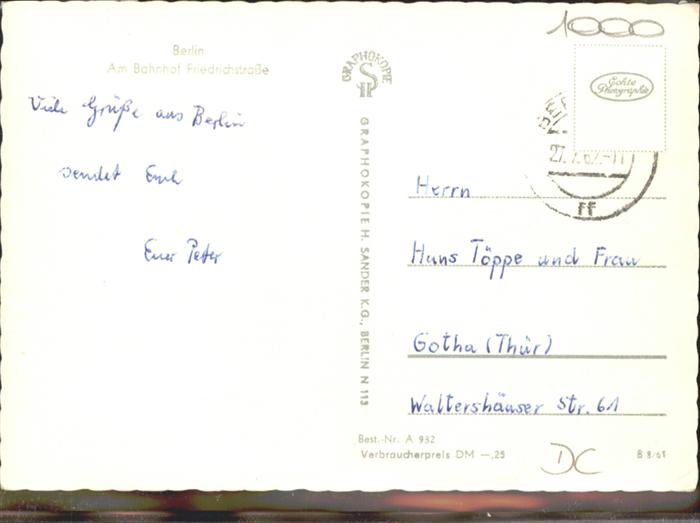 1000
Berlin
Am Bahnhof Friedrichstraße
Viele Grüße aus Berlin
sendet Euch
Euer Peter
GRAPHOKOPIE
GRAPHOKOPIE H. SANDER K.G., BERLIN N 113
Echte
Photographie
27.7.62.-11
ff
Herrn
Hans Töppe und Frau
Gotha (Thür)
Waltershäuser Str. 61
Best.-Nr. A 932
Verbraucherpreis DM —,25
DC
B 8/61